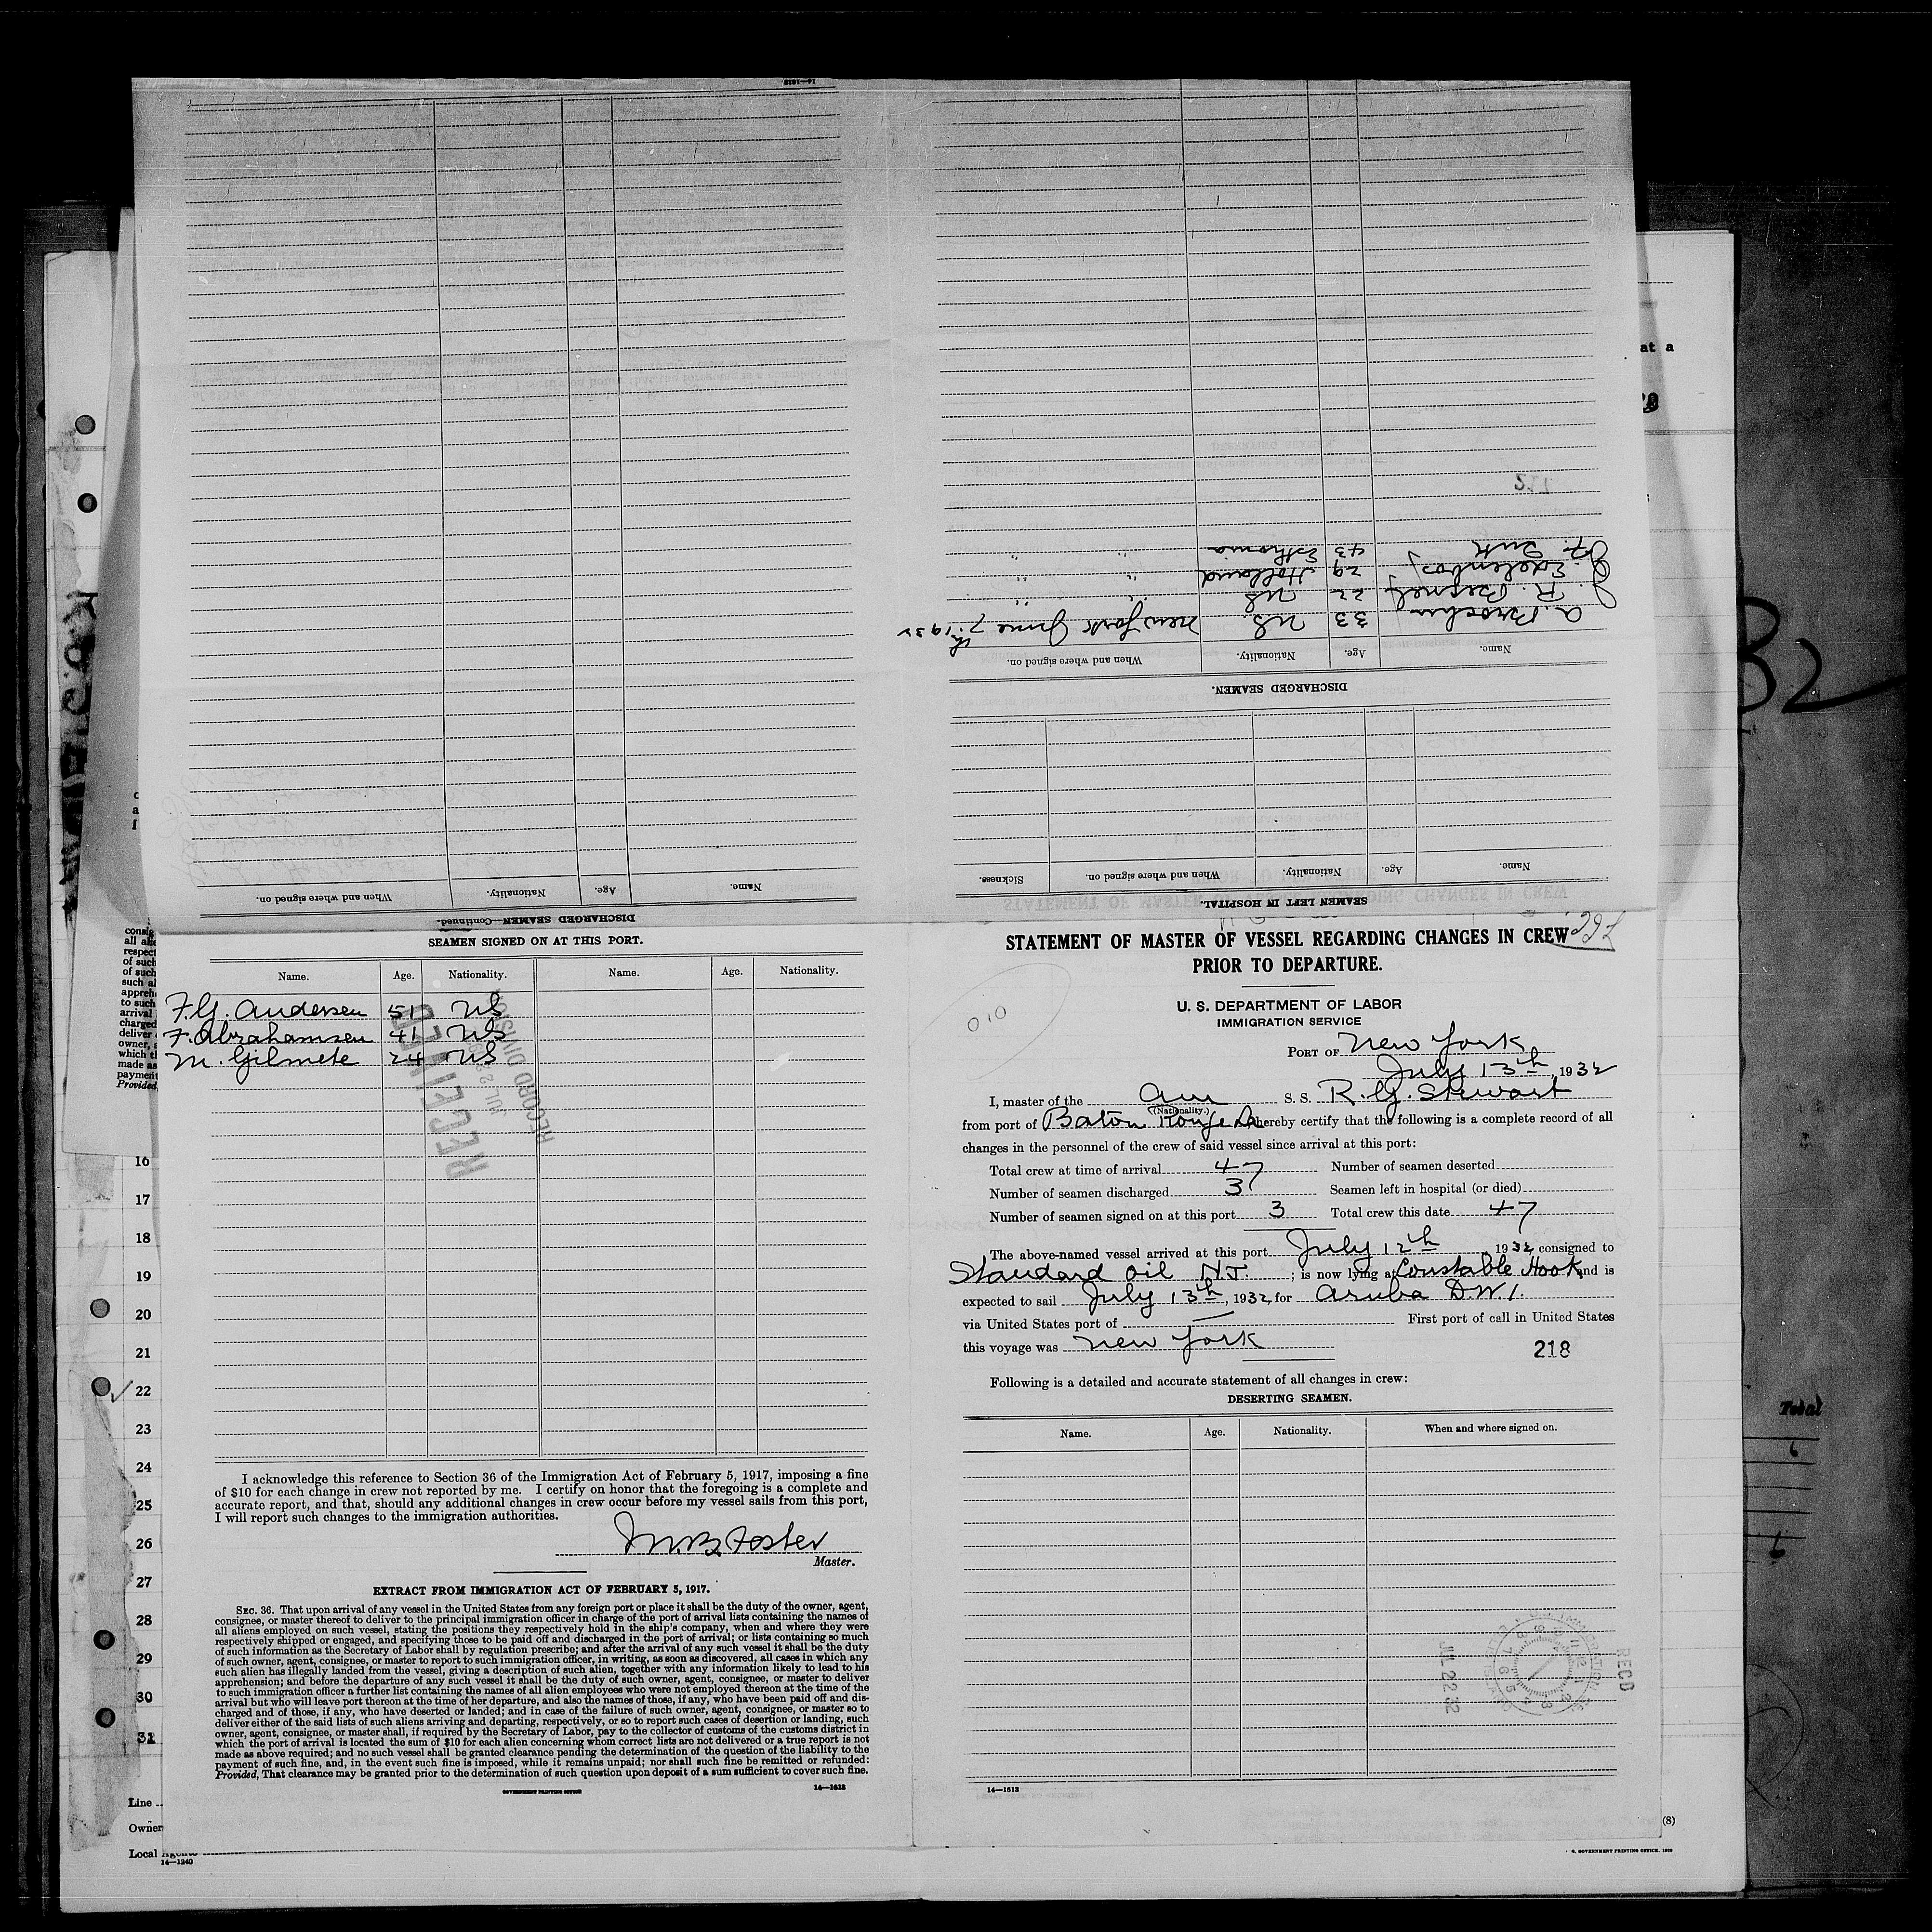 DISCHARGED SEAMEN—Continued.
Name. Age. Nationality. When and where signed on.
SEAMEN LEFT IN HOSPITAL.
Name. Age. Nationality. When and where signed on. Sickness.
DISCHARGED SEAMEN.
Name. Age. Nationality. When and where signed on.
33 US. New York June 7th 1932
22 US " "
29 Holland " "
43 Esthonia " "
SEAMEN SIGNED ON AT THIS PORT.
Name. Age. Nationality. Name. Age. Nationality.
F.G. Andersen 51 US
F. Abrahamsen 41 US
M. Gilmete 24 US
RECEIVED
RECORD DIVISION
I acknowledge this reference to Section 36 of the Immigration Act of February 5, 1917, imposing a fine
of $10 for each change in crew not reported by me. I certify on honor that the foregoing is a complete and
accurate report, and that, should any additional changes in crew occur before my vessel sails from this port,
I will report such changes to the immigration authorities.
M.B. Foster
Master.
EXTRACT FROM IMMIGRATION ACT OF FEBRUARY 5, 1917.
SEC. 36. That upon arrival of any vessel in the United States from any foreign port or place it shall be the duty of the owner, agent,
consignee, or master thereof to deliver to the principal immigration officer in charge of the port of arrival lists containing the names of
all aliens employed on such vessel, stating the positions they respectively hold in the ship's company, when and where they were
respectively shipped or engaged, and specifying those to be paid off and discharged in the port of arrival; or lists containing so much
of such information as the Secretary of Labor shall by regulation prescribe; and after the arrival of any such vessel it shall be the duty
of such owner, agent, consignee, or master to report to such immigration officer, in writing, as soon as discovered, all cases in which any
such alien has illegally landed from the vessel, giving a description of such alien, together with any information likely to lead to his
apprehension; and before the departure of any such vessel it shall be the duty of such owner, agent, consignee, or master to deliver
to such immigration officer a further list containing the names of all alien employees who were not employed thereon at the time of the
arrival but who will leave port thereon at the time of her departure, and also the names of those, if any, who have been paid off and dis-
charged and of those, if any, who have deserted or landed; and in case of the failure of such owner, agent, consignee, or master so to
deliver either of the said lists of such aliens arriving and departing, respectively, or so to report such cases of desertion or landing, such
owner, agent, consignee, or master shall, if required by the Secretary of Labor, pay to the collector of customs of the customs district in
which the port of arrival is located the sum of $10 for each alien concerning whom correct lists are not delivered or a true report is not
made as above required; and no such vessel shall be granted clearance pending the determination of the question of the liability to the
payment of such fine, and, in the event such fine is imposed, while it remains unpaid; nor shall such fine be remitted or refunded:
Provided, That clearance may be granted prior to the determination of such question upon deposit of a sum sufficient to cover such fine.
GOVERNMENT PRINTING OFFICE 14—1613
STATEMENT OF MASTER OF VESSEL REGARDING CHANGES IN CREW
PRIOR TO DEPARTURE.
U. S. DEPARTMENT OF LABOR
IMMIGRATION SERVICE
PORT OF New York
July 13th, 1932
I, master of the Am S. S. R.G. Stewart
(Nationality.)
from port of Baton Rouge La hereby certify that the following is a complete record of all
changes in the personnel of the crew of said vessel since arrival at this port:
Total crew at time of arrival 47 Number of seamen deserted
Number of seamen discharged 3 Seamen left in hospital (or died)
Number of seamen signed on at this port 3 Total crew this date 47
The above-named vessel arrived at this port July 12th 1932 consigned to
Standard Oil NJ. ; is now lying at Constable Hook, and is
expected to sail July 13th, 1932, for Aruba D.W.I.
via United States port of — First port of call in United States
this voyage was New York
218
Following is a detailed and accurate statement of all changes in crew:
DESERTING SEAMEN.
Name. Age. Nationality. When and where signed on.
REC'D
JUL 22 32
14—1613
16
17
18
19
20
21
22
23
24
25
26
27
28
29
30
31
Line
Owner
Local Agents
14—1240
(8)
at a
32
Total
6